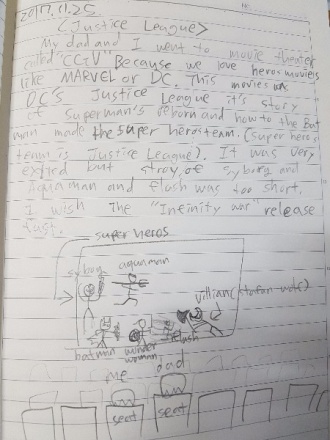 2017.11.25
<Justice League>
My dad and I went to movie theater
called "CGV" Because we love heros movies
like MARVEL or DC. This movies was
DC's Justice League it's story
of Superman's reborn and how to the Bat
man made the super heros team. (super heros
team is Justice League). It was very
exited but stroy of syborg and
aqua man and flash was too short.
I wish The "Infinity war" release
fast.
super heros
syborg aquaman
villian (steffan wolf)
batman wonder woman flash
me dad
seat seat